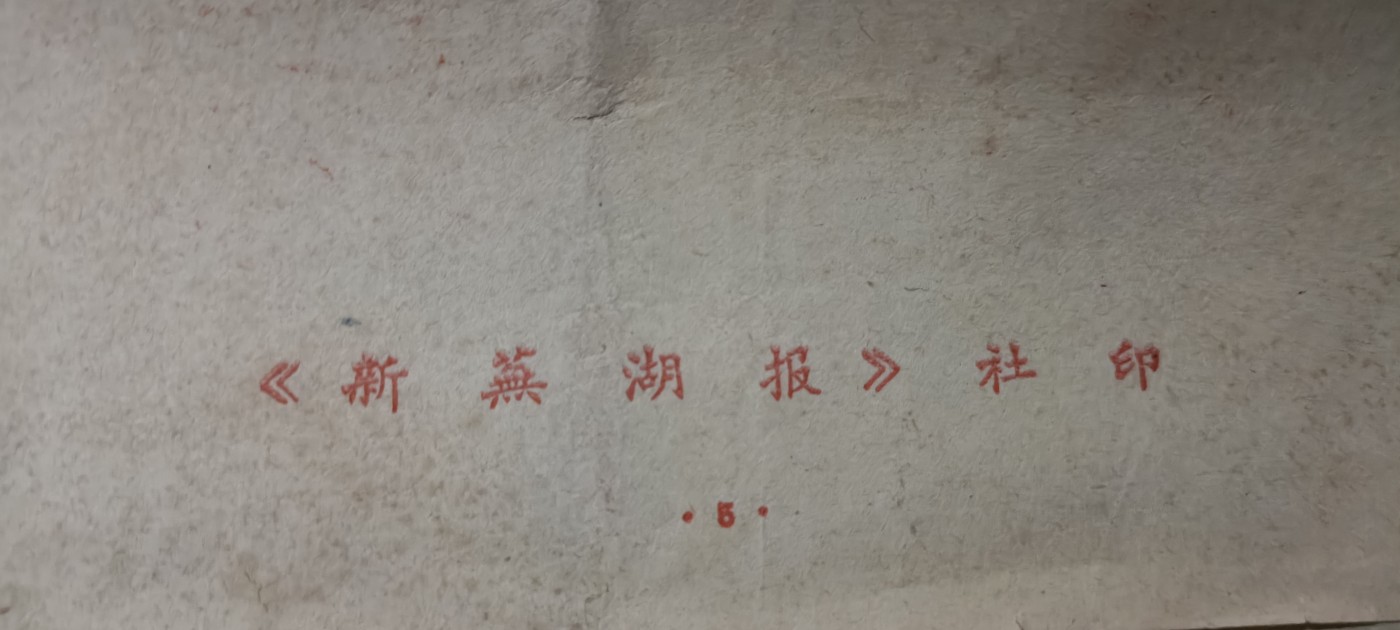 《新蕪湖报》社印
·5·